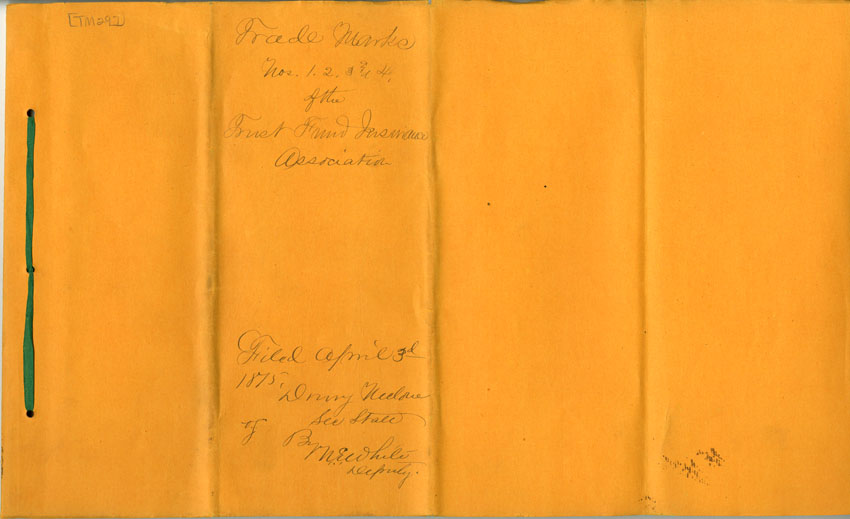 [TM292]
Trade Marks
Nos. 1. 2. 3 & 4,
of the
Trust Fund Insurance
Association
Filed April 3d
1875,
Drury Melone
Sec State
of
By
White
Deputy.